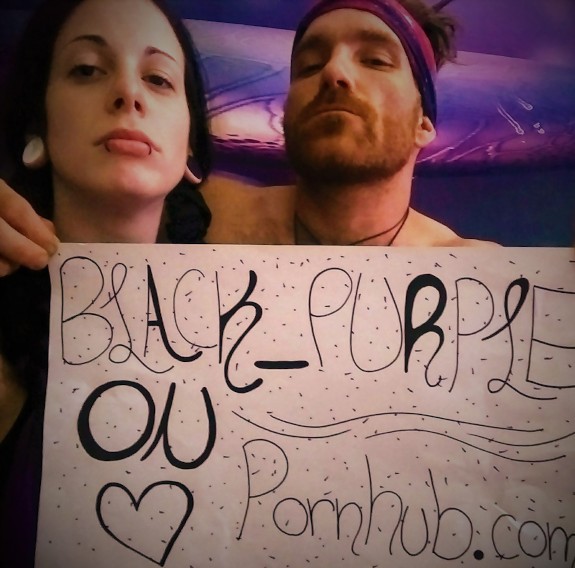 BLACK_PURPLE
ON
♡ Pornhub.com